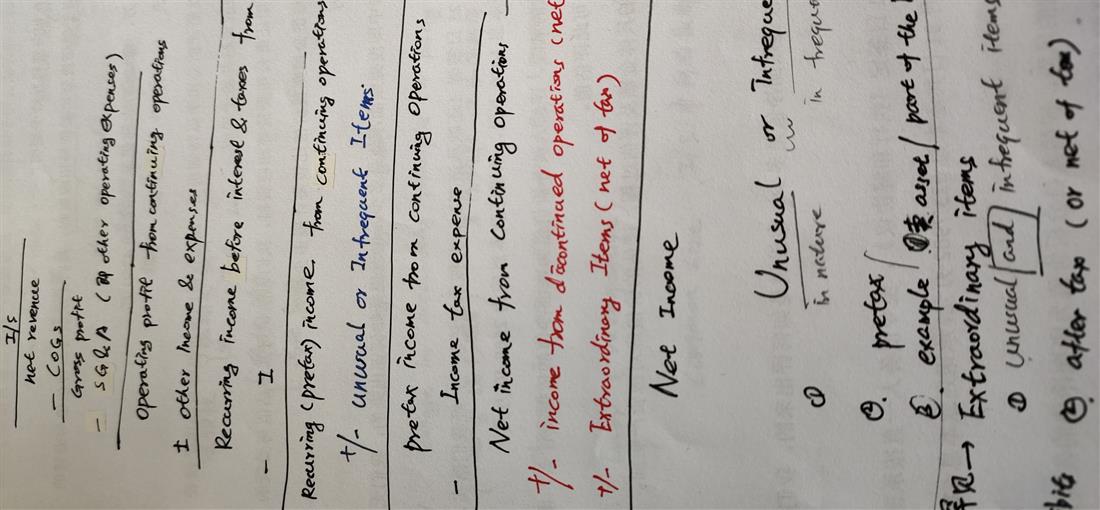 I/S
net revenue
- COGS
Gross profit
- SG&A (即 other operating expenses)
Operating profit from continuing operations
± other income & expenses
Recurring income before interest & taxes from
- I
Recurring (pretax) income from continuing operations
+/- Unusual or Infrequent Items.
pretax income from continuing operations
- Income tax expense
Net income from continuing operations
+/- income from discontinued operations (net
+/- Extraordinary Items (net of tax)
Net Income
① Unusual or Infreque
in nature in freque
②. pretax
example asset / part of the
→ Extraordinary items
① Unusual and infrequent items
② after tax (or net of tax).